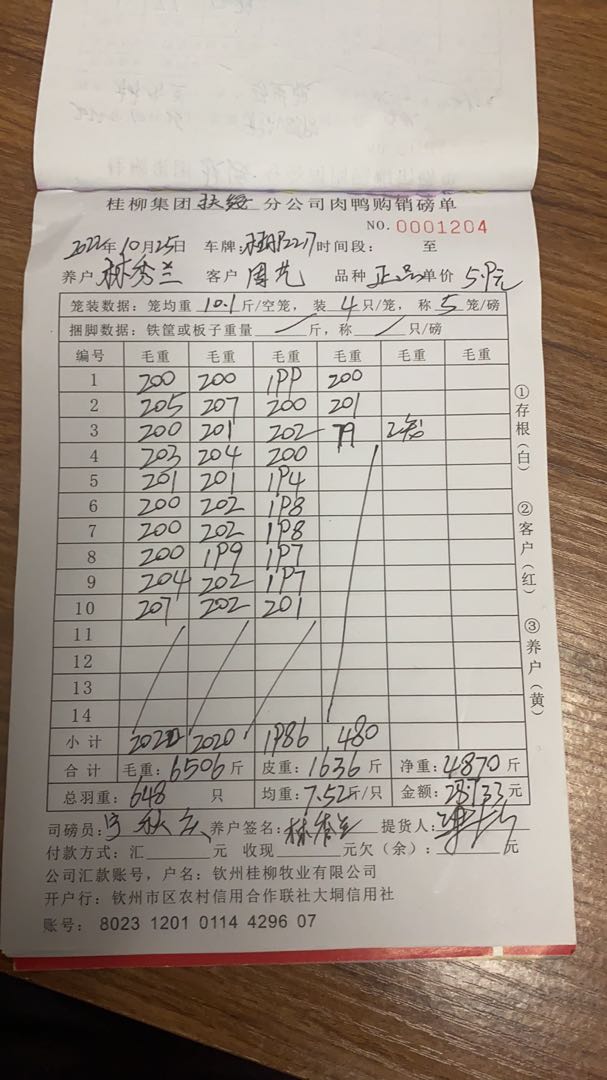 桂柳集团扶绥分公司肉鸭购销磅单
NO. 0001204
2022年10月25日 车牌: 2217 时间段: 至
养户 林秀兰 客户 周先 品种 正品 单价 5.9元
笼装数据: 笼均重 10.1 斤/空笼, 装 4 只/笼, 称 5 笼/磅
捆脚数据: 铁筐或板子重量 斤, 称 只/磅
编号 毛重 毛重 毛重 毛重 毛重 毛重
1 200 200 199 200
2 205 207 200 201
3 200 201 202 79 2笼
4 203 204 200
5 201 201 194
6 200 202 198
7 200 202 198
8 200 199 197
9 204 202 197
10 207 202 201
11
12
13
14
小计 2020 2020 1986 480
合计 毛重: 6506 斤 皮重: 1636 斤 净重: 4870 斤
总羽重: 648 只 均重: 7.52 斤/只 金额: 28733 元
司磅员: 养户签名: 林秀兰 提货人:
付款方式: 汇 元 收现 元欠(余): 元
公司汇款账号, 户名: 钦州桂柳牧业有限公司
开户行: 钦州市区农村信用合作联社大垌信用社
账号: 8023 1201 0114 4296 07
①存根(白)
②客户(红)
③养户(黄)